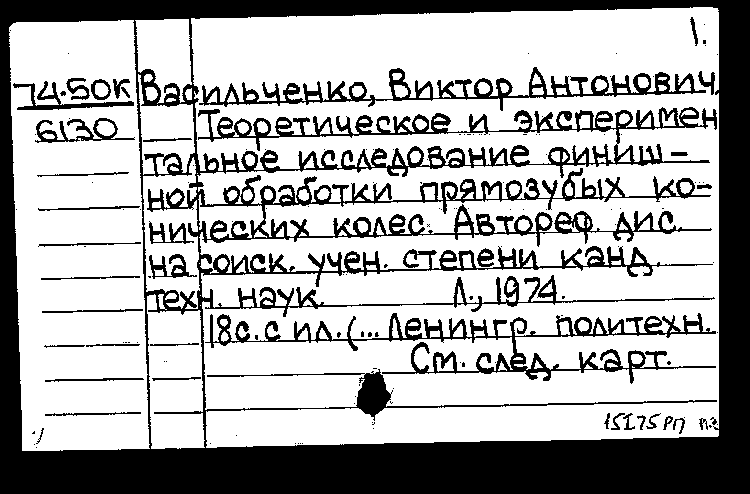 1.
74-50К Васильченко, Виктор Антонович.
6130 Теоретическое и эксперимен
тальное исследование финиш-
ной обработки прямозубых ко-
нических колес. Автореф. дис.
на соиск. учен. степени канд.
техн. наук. Л., 1974.
18с. с ил. (... Ленингр. политехн.
См. след. карт.